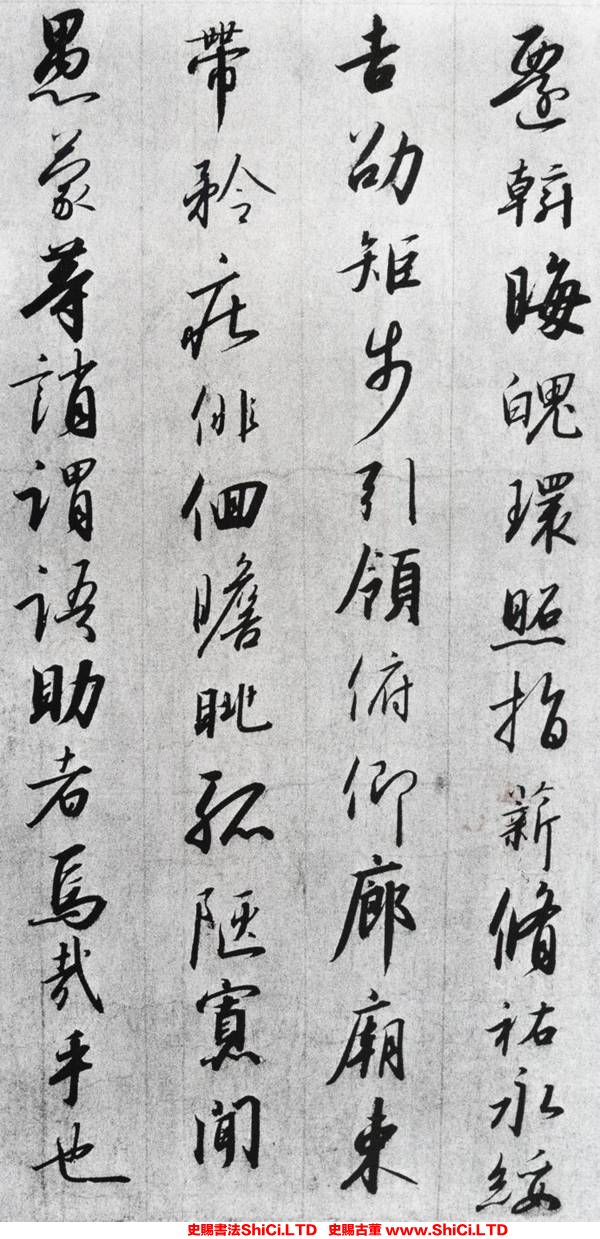 遷斡晦魄環照指薪脩祐永綏
吉劭矩步引領俯仰廊廟束
帶矜莊俳佪瞻眺孤陋寡聞
愚蒙等誚謂語助者焉哉乎也
史賜書法ShiCi.LTD 史賜古董 www.ShiCi.LTD